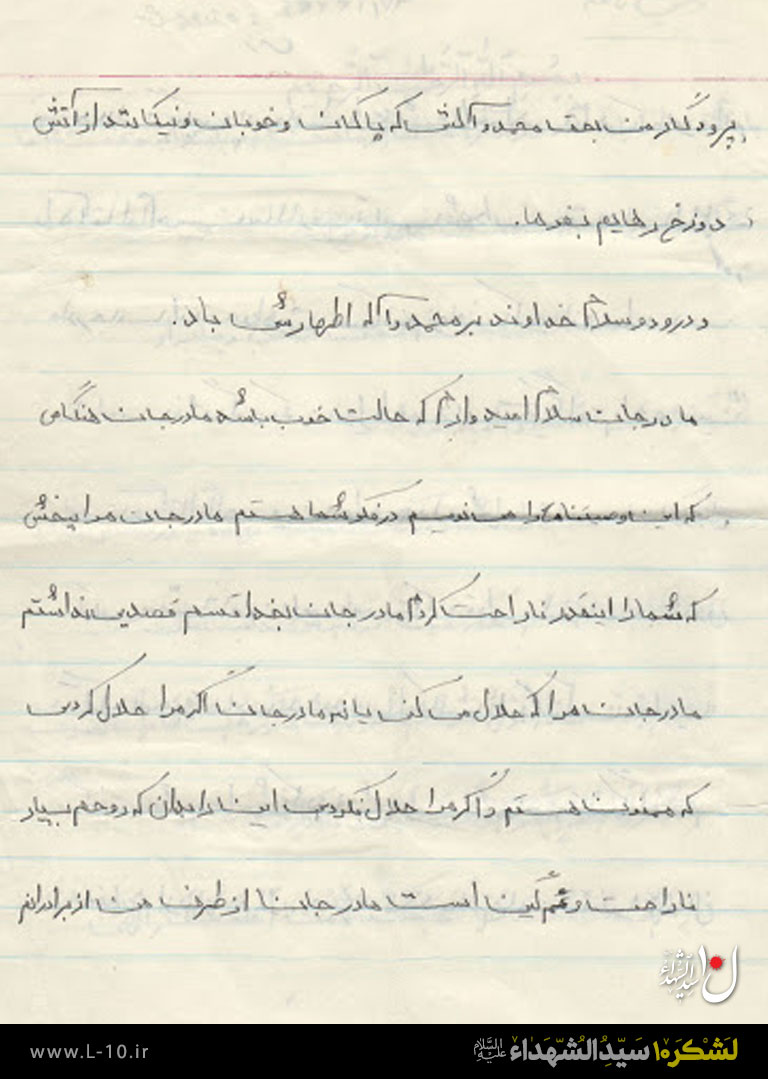 پروردگار من بحق محمد و آلش که پاکان و خوبان و نیکانند از آتش
دوزخ رهایم بفرما.
و درود و سلام خداوند بر محمد و آله اطهارش باد.
مادر جان سلام امیدوارم که حالت خوب باشد مادر جان هنگامی
که این وصیتنامه را می نویسم در فکر شما هستم مادر جان مرا ببخش
که شما را اینقدر ناراحت کردم مادر جان بخدا قسم قصدی نداشتم
مادر جان مرا که حلال می کنی یا نه مادر جان اگر مرا حلال کردی
که ممنونت هستم و اگر مرا حلال نکردی این را بدان که روحم بسیار
ناراحت و غمگین است مادر جان از طرف من از برادرانم
سیدالشهداء
www.L-10.ir
لشکر ۱۰ سَیِّدُالشُّهَداء عَلَیهِ السَّلام